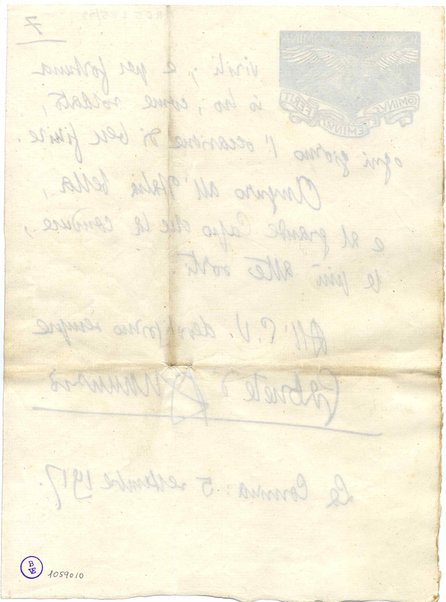 7
virili; e per fortuna
io ho, come soldato,
ogni giorno l'occasione di ben finire.
Auguro all'Italia bella,
e al grande Capo che la conduce,
le più alte sorti.
All' E. V. devotissimo sempre
Gabriele d'Annunzio
La Comina: 5 settembre 1917.
BVE
1059010